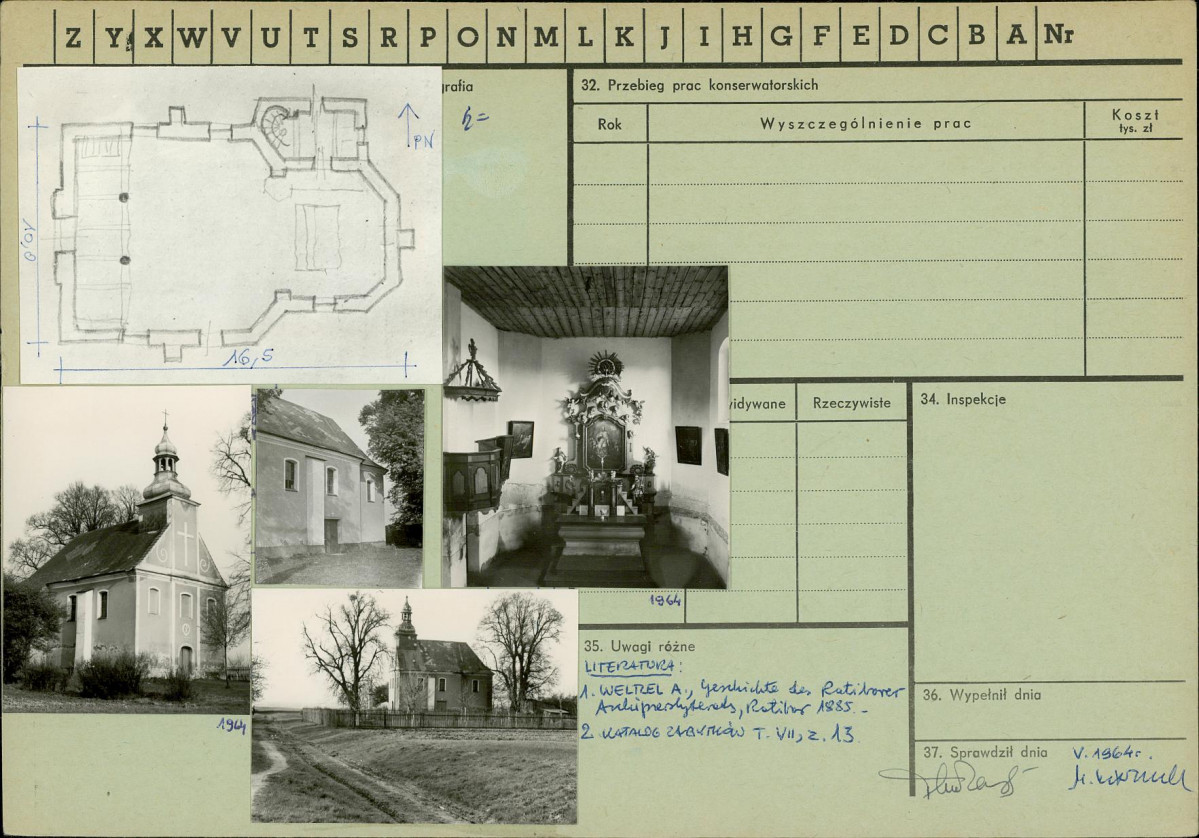 Z Y X W V U T S R P O N M L K J I H G F E D C B A Nr
grafia
h=
32. Przebieg prac konserwatorskich
Rok
Wyszczególnienie prac
Koszt
tys. zł
PN
10,0
16,5
widywane
Rzeczywiste
34. Inspekcje
1964
1964
35. Uwagi różne
LITERATURA:
1. WELTZEL A., Geschichte des Ratiborer
Archipresbyterats, Ratibor 1885.-
2. KATALOG ZABYTKÓW T. VII, z. 13
36. Wypełnił dnia
37. Sprawdził dnia
V. 1964 r.